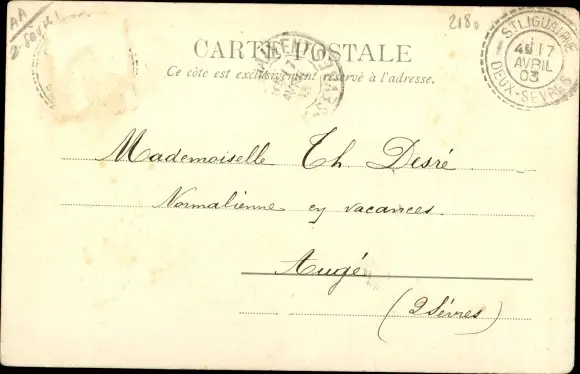 AA
2 Sèvres
2180
CARTE POSTALE
Ce côte est exclusivement réservé à l'adresse.
ST LIGUAIRE
4E 17
AVRIL
03
DEUX-SÈVRES
Mademoiselle Th Desré
Normalienne en vacances.
Augé
(2 Sèvres)